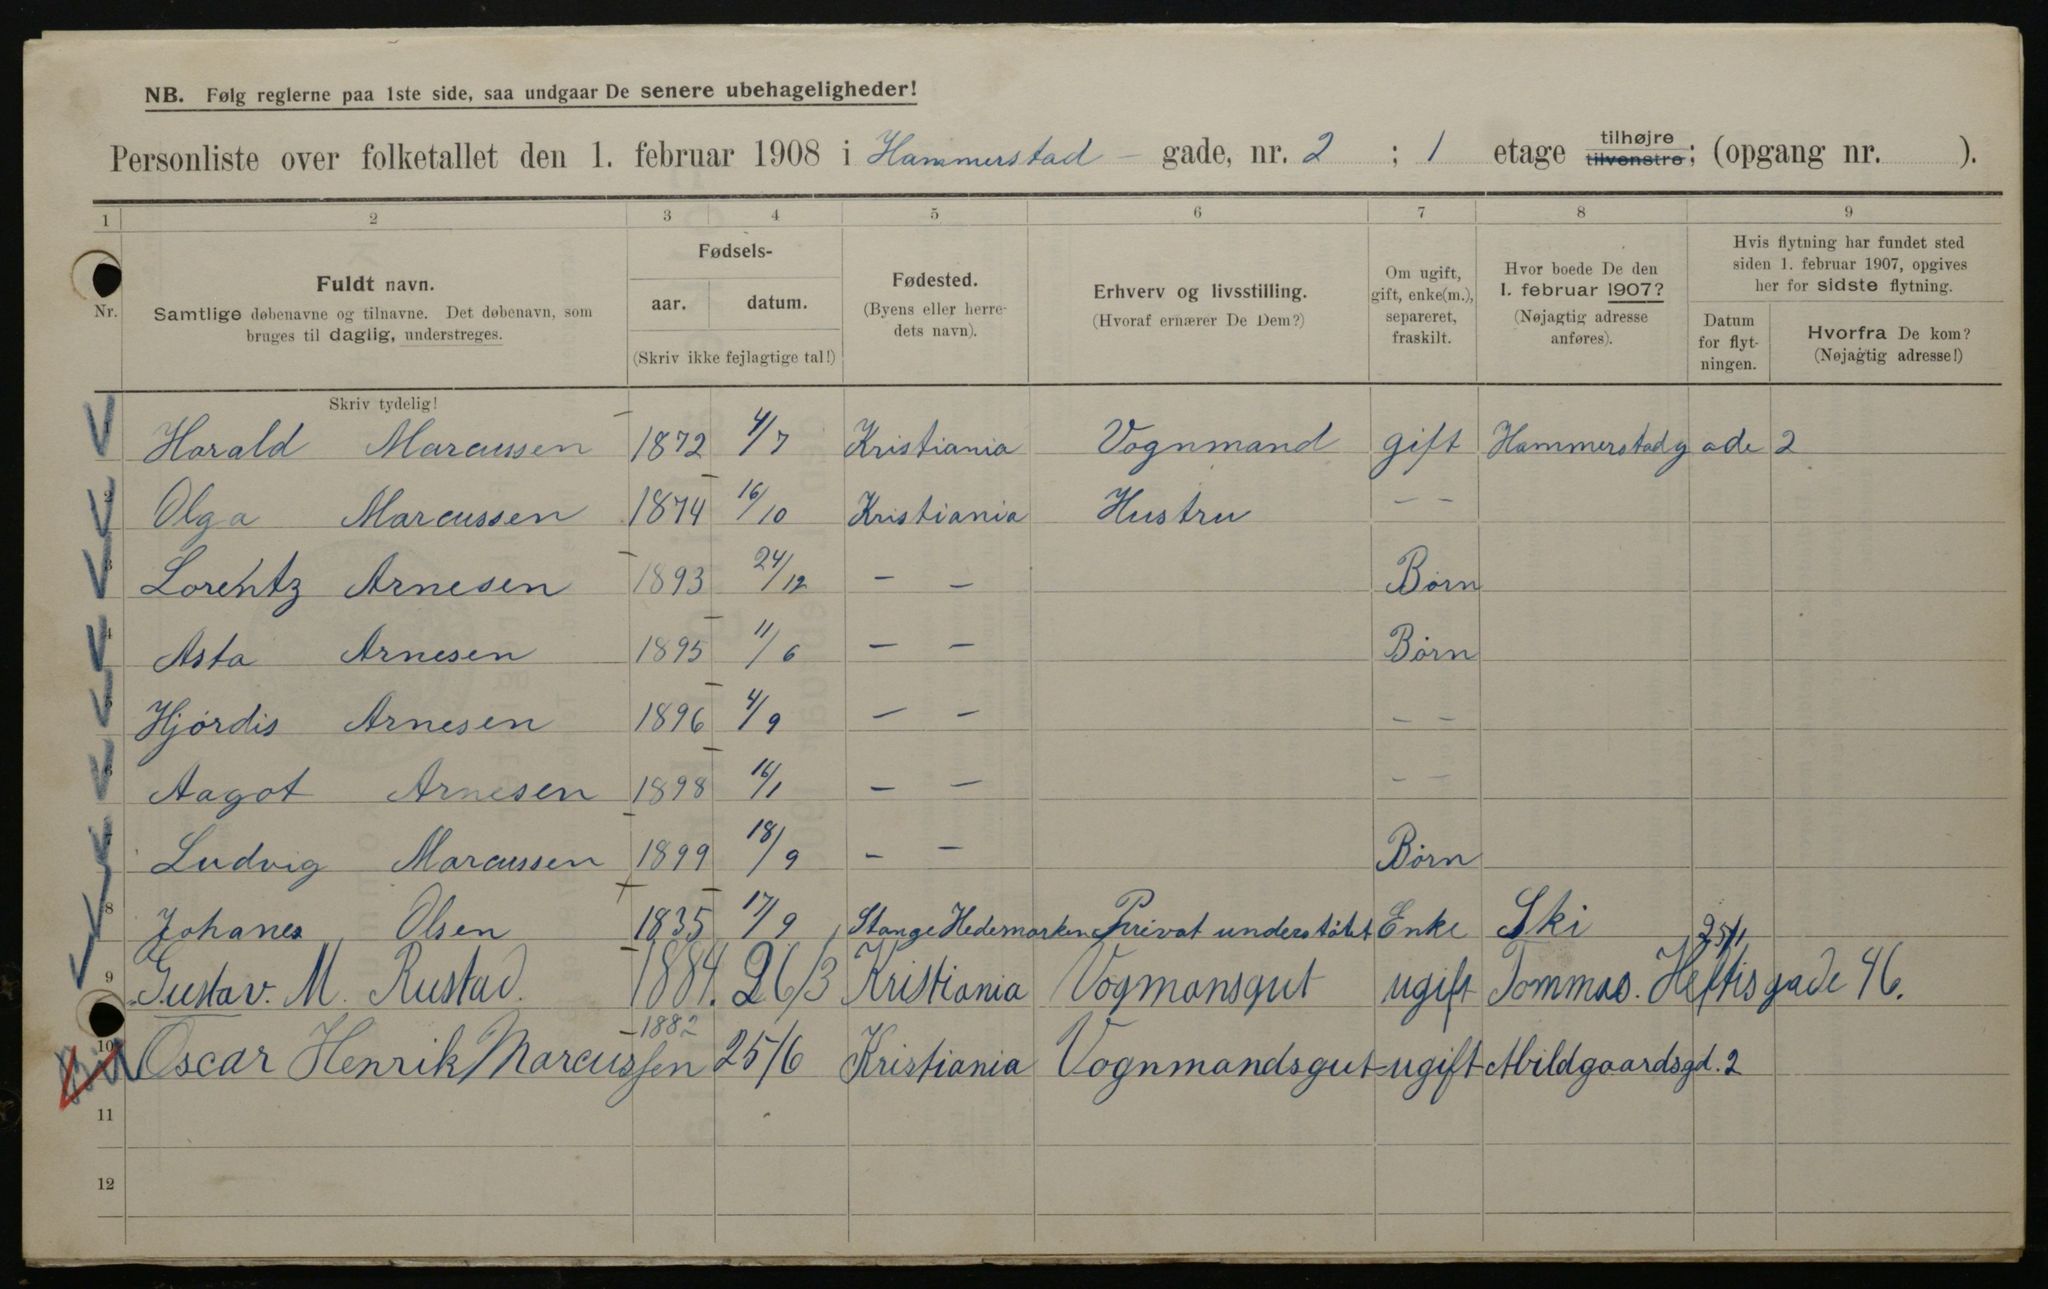 NB. Følg reglerne paa 1ste side, saa undgaar De senere ubehageligheder!
Personliste over folketallet den 1. februar 1908 i Hammerstad – gade, nr. 2 ; 1 etage tilhøjre tilvenstre; (opgang nr. ).
1 2 3 4 5 6 7 8 9
Nr.
Fuldt navn.
Samtlige døbenavne og tilnavne. Det døbenavn, som
bruges til daglig, understreges.
Skriv tydelig!
Fødsels-
aar. datum.
(Skriv ikke fejlagtige tal!)
Fødested.
(Byens eller herre-
dets navn).
Erhverv og livsstilling.
(Hvoraf ernærer De Dem?)
Om ugift,
gift, enke(m.),
separeret,
fraskilt.
Hvor boede De den
1. februar 1907?
(Nøjagtig adresse
anføres).
Hvis flytning har fundet sted
siden 1. februar 1907, opgives
her for sidste flytning.
Datum
for flyt-
ningen.
Hvorfra De kom?
(Nøjagtig adresse!)
Harald Marcussen 1872 4/7 Kristiania Vognmand gift Hammerstadgade 2
2 Olga Marcussen 1874 16/10 Kristiania Hustru – –
3 Lorentz Arnesen 1893 24/12 – – Børn
4 Asta Arnesen 1895 11/6 – – Børn
5 Hjørdis Arnesen 1896 4/9 – – – –
6 Aagot Arnesen 1898 16/1 – – – –
7 Ludvig Marcussen 1899 18/9 – – Børn
8 Johanes Olsen 1835 17/9 Stange Hedemarken Privat understøtet Enke Ski 25/1
9 Gustav. M. Rustad. 1884. 26/3 Kristiania Vogmansgut ugift Tommas. Heftisgade 46.
10 Oscar Henrik Marcussen 1882 25/6 Kristiania Vognmandsgut ugift Abildgaardsgd. 2
11
12